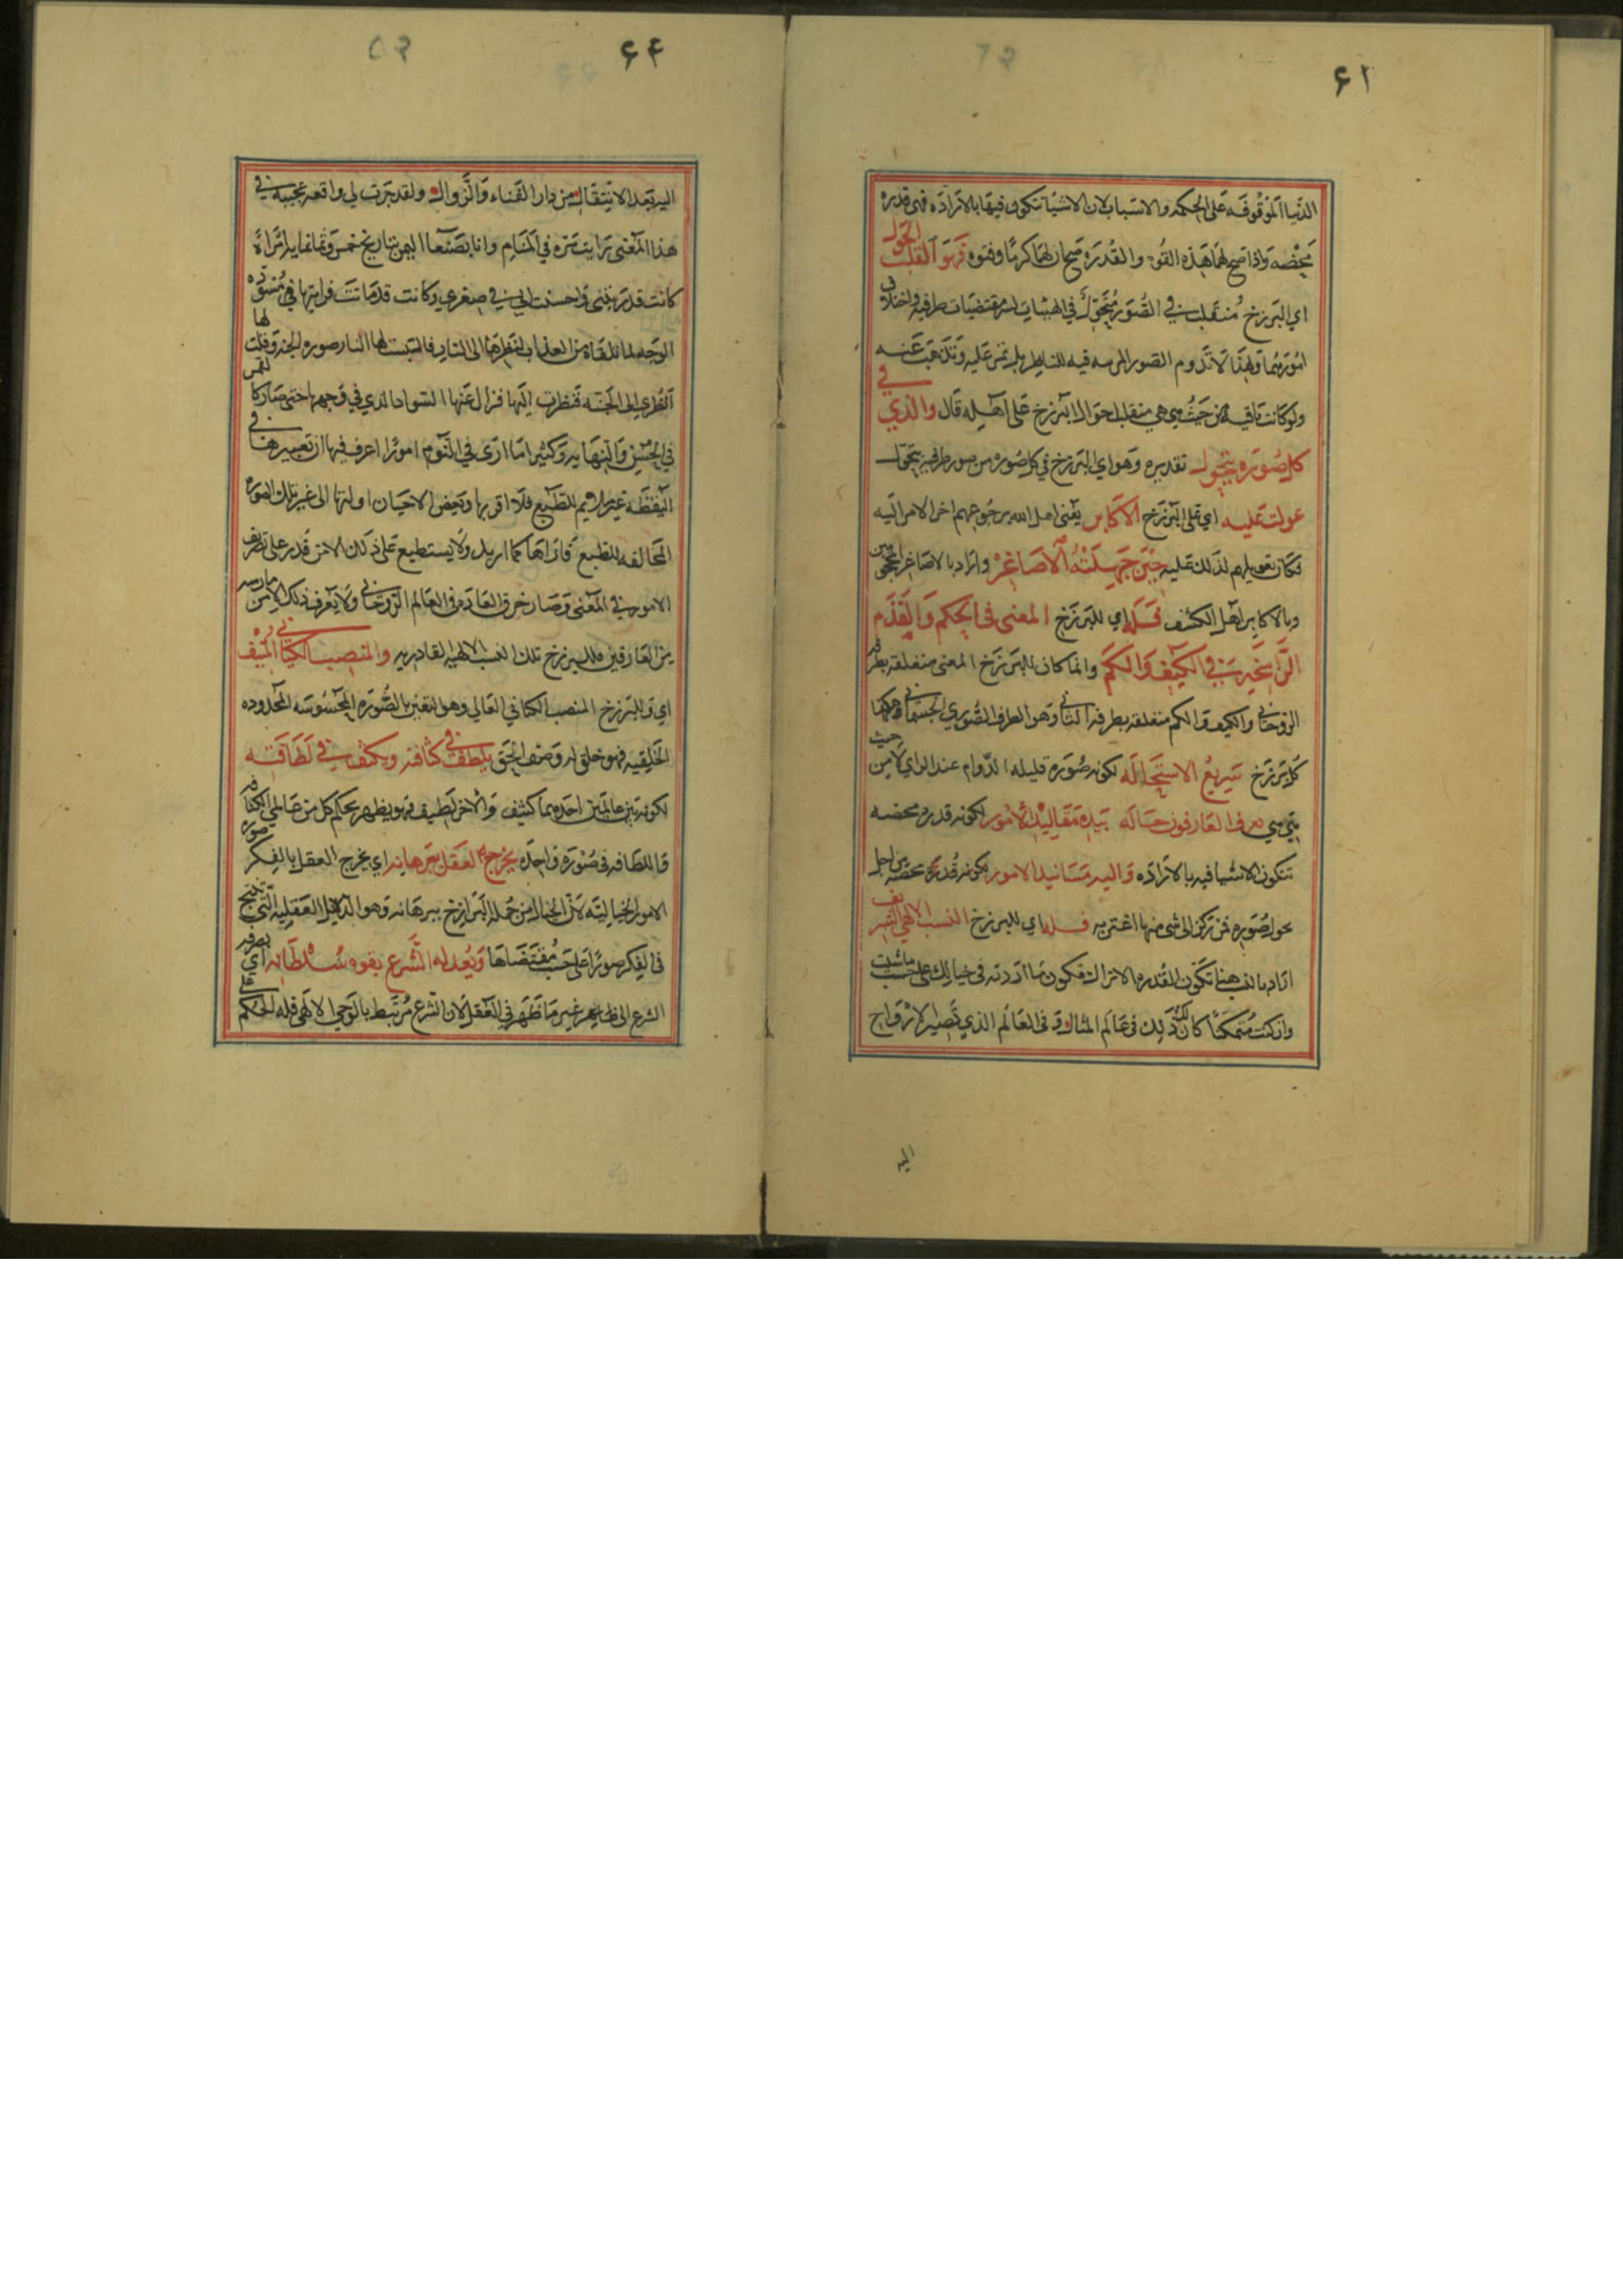 ۶۱
الدنيا الموقوفه على الحكمه والاسباب لان الاشيا تتكون فيها بالاراده فهى قدره
محضه واذا صح لها هذه القوه والقدره صح ان لها كرمًا وفتوه فهو القلب الحول
اي البرزخ منقلب في الصُّور مُتحوّل في الهيئات لسر مقتضيات طرفيه واختلاف
امورهما ولهذا لا تدوم الصور المرسه فيه للناظر بل تمر عليه وتذهب عنه
ولو كانت باقيه من حيث هي هي منقلب احوال البرزخ على اهله قال والذي في
كل صُوره يتحول تقديره وهو اي البرزخ في كل صُوره من صور طرفيه يتحول
عولت عليه اي على البرزخ الاكابر يعنى اهل الله رجوعهم اخر الامر اليه
فكان تعويلهم لذلك عليه حين جهلته الاصاغر واراد بالاصاغر المحجوبين
وبالاكابر اهل الكشف فله اي للبرزخ المعنى فى الحكم والقدم
الراسخ في الكيف والكم وانما كان للبرزخ المعنى متعلقه بطرفه
الروحاني والكيف والكم متعلقه بطرفه الثاني وهو الطرف الصُّوري الجسماني وهكذا
كل برزخ سريع الاستحاله لكونه صُوره قليله الدّوام عند الراي لا من حيث
هي هي تعرف العارفون حاله بيده مقاليد الامور لكونه قدره محضه
تتكون الاشيا فيه بالاراده واليه مسانيد الامور لكونه قُدره محضه من اجل
حول صوره فمن تركن الى شي منها اغتر به فله اي للبرزخ النسب الالهي الشريف
اراد بالنسب هنا تكون القدره الا تراك فتكون ما اردته فى خيالك على حسب ما شئت
وان كنت متمكنًا كان لك ذلك فى عالم المثال وفى العالم الذي تصير الارواح
اليه
۶۲
اليه بعد الانتقال من دار الفناء والزوال ولقد جرت لي واقعه عجيبه في
هذا المعنى رايت مره في المنام وانا بصنعا اليمن بتاريخ خمس وثمانمايه امراة
كانت قد ربتنى واحسنت الي في صغري وكانت قد ماتت فرايتها في مُسْوَدّه
الوجه لما تلقاه من العذاب لنظرها الى النار فالتبست لها النار صوره الجنه وقلت لها
انظري الى الجنه فنظرت اليها فزال عنها السواد الذي في وجهها حتى صار كالقمر
في الحسن والبهايه وكثيرا ما ارى في النوم امورًا اعرف فيها ان تعبيرها في
اليقظه غير ملايم للطبع فلا اقربها وبعض الاحيان اولتها الى غير تلك الصوره
المخالفه للطبع فاراها كما اريد ولا يستطيع على ذلك الا من قدر على تصريف
الامور في المعنى وصار خرق العاده فى العالم الروحاني ولا يعرف ذلك الا من مارسه
من العارفين فللبرزخ تلك النسب الالهيه القادريه والمنصب الكياني المنيف
اي وللبرزخ المنصب الكياني العالي وهو التعين بالصُّوره المحسُوسه المحدوده
الخلقيه فهو خلق له وصف الحق يلطف في كثافته ويكثف في لطافته
لكونه بين عالمين احدهما كثيف والاخر لطيف فهو يظهر بحكم كل من عالمي الكثافه
واللطافه فى صُوره واحده يخرج العقل ببرهانه اي يخرج العقل بالفكر صوره
الامور الخياليّه لانّ الخيال من جمله البرازخ ببرهانه وهو الدلايل العقليه التي تنتج
فى الفكر صورًا على حسب مقتضاها ويعدله الشرع بقوه سُلطانه اى يصرفه
الشرع الى ظاهر غير ما ظهر في العقل لان الشرع مُرتبط بالوحي الالهى فله الحكم على